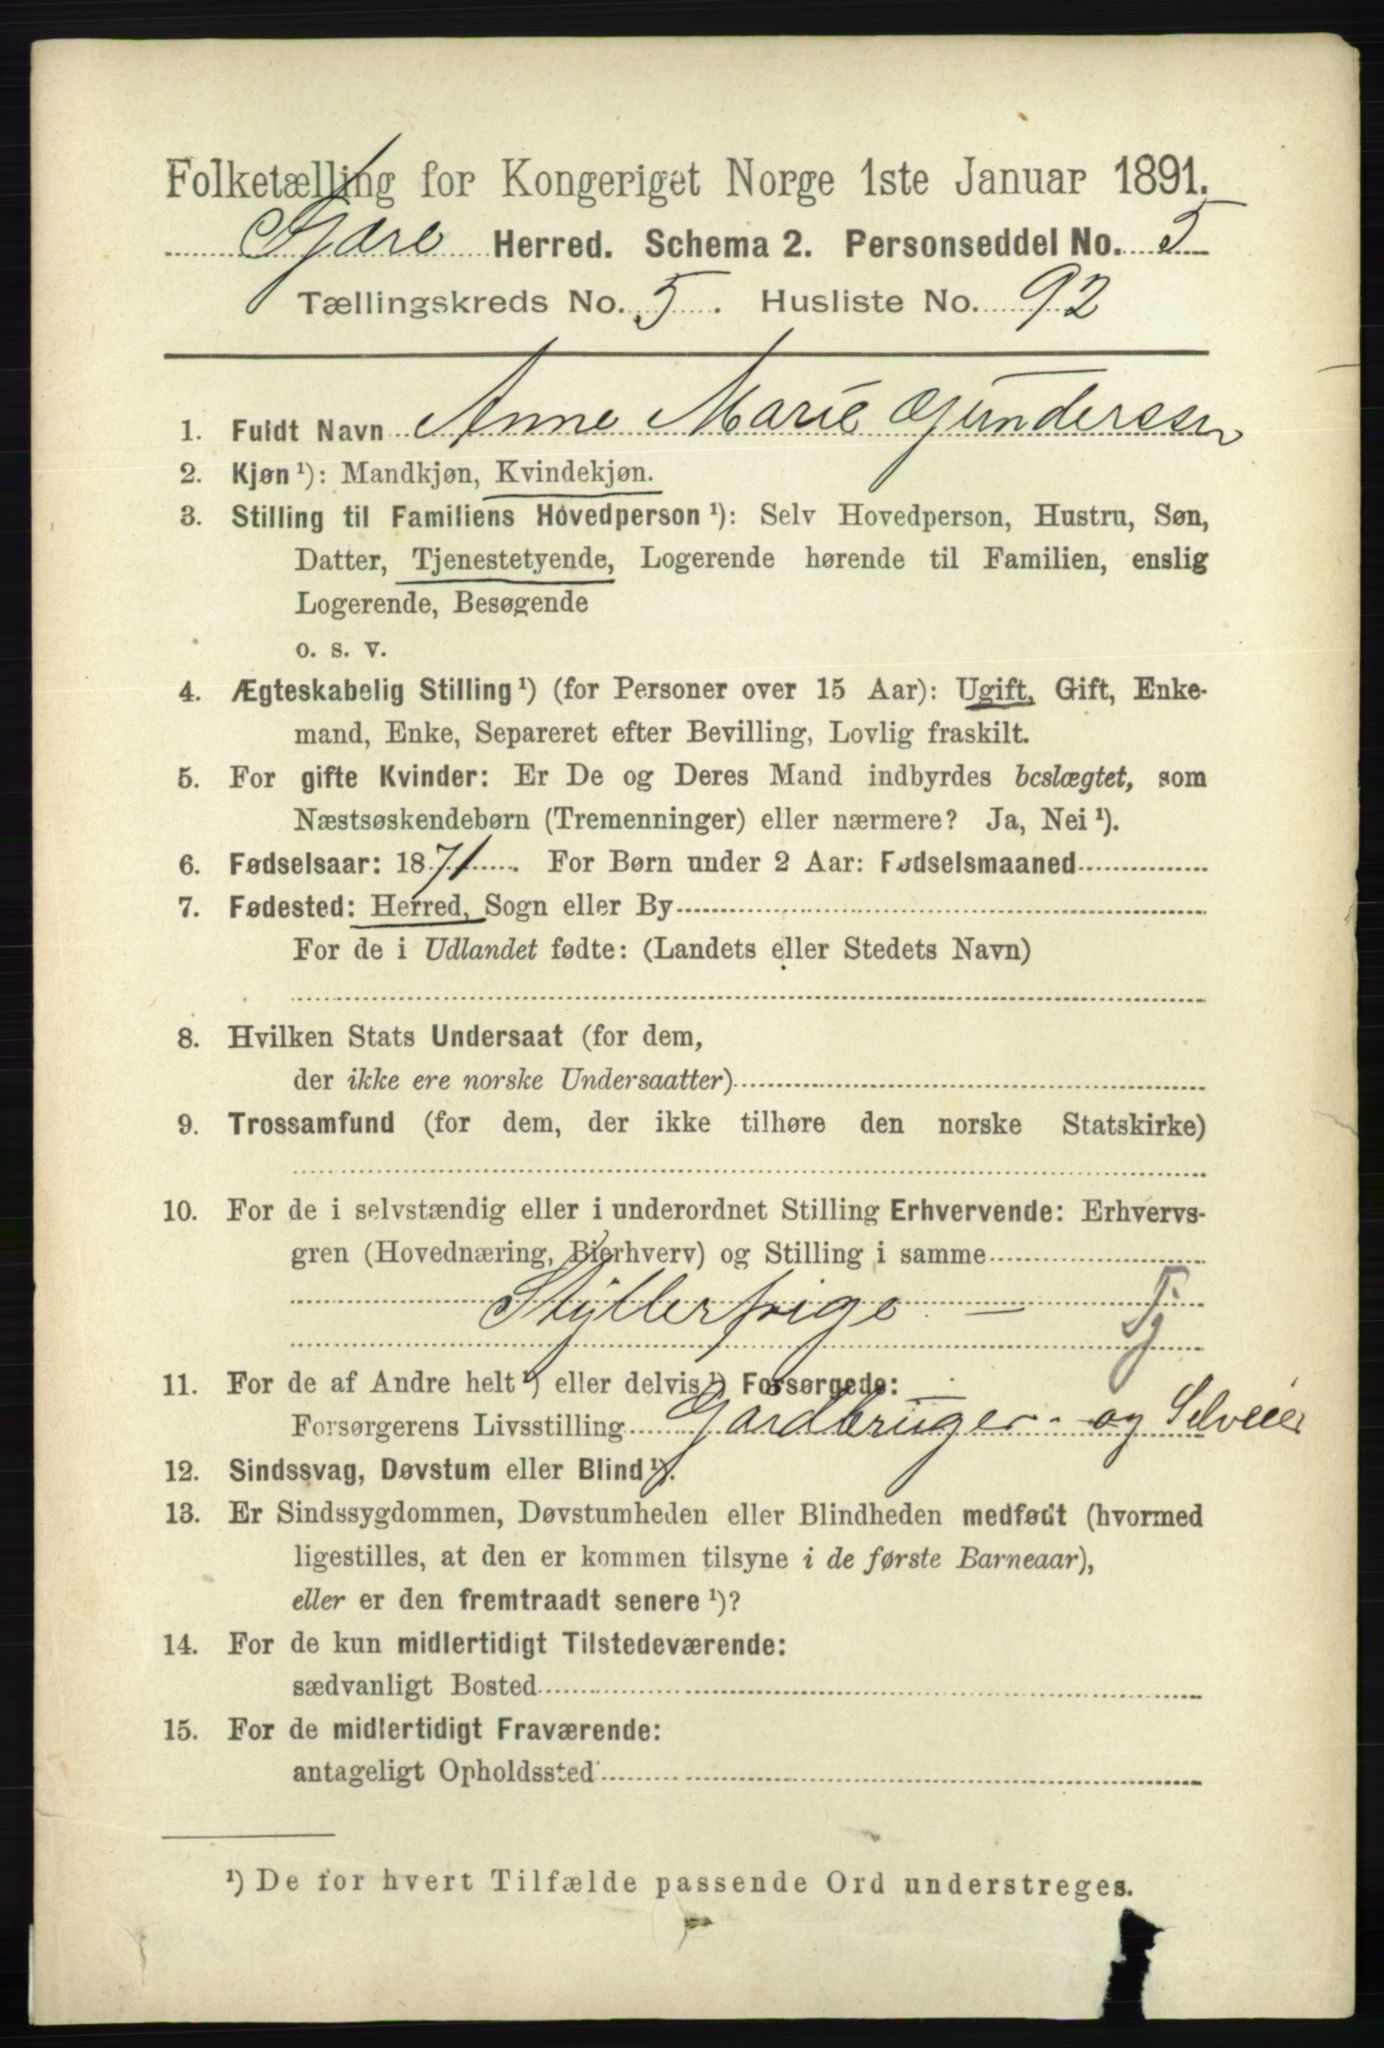 Folketælling for Kongeriget Norge 1ste Januar 1891.
Herred. Schema 2. Personseddel No. 5
Tællingskreds No. 5. Husliste No. 92
1. Fuldt Navn Anne Marie Gunderssen
2. Kjøn¹): Mandkjøn, Kvindekjøn.
3. Stilling til Familiens Hovedperson¹): Selv Hovedperson, Hustru, Søn,
Datter, Tjenestetyende, Logerende hørende til Familien, enslig
Logerende, Besøgende
o. s. v.
4. Ægteskabelig Stilling¹) (for Personer over 15 Aar): Ugift, Gift, Enke-
mand, Enke, Separeret efter Bevilling, Lovlig fraskilt.
5. For gifte Kvinder: Er De og Deres Mand indbyrdes beslægtet, som
Næstsøskendebørn (Tremenninger) eller nærmere? Ja, Nei¹).
6. Fødselsaar: 1871. For Børn under 2 Aar: Fødselsmaaned
7. Fødested: Herred, Sogn eller By
For de i Udlandet fødte: (Landets eller Stedets Navn)
8. Hvilken Stats Undersaat (for dem,
der ikke ere norske Undersaatter)
9. Trossamfund (for dem, der ikke tilhøre den norske Statskirke)
10. For de i selvstændig eller i underordnet Stilling Erhvervende: Erhvervs-
gren (Hovednæring, Bierhverv) og Stilling i samme
Tj
11. For de af Andre helt¹) eller delvis¹) Forsørgede:
Forsørgerens Livsstilling Gårdbruger og Selveier
12. Sindssvag, Døvstum eller Blind¹).
13. Er Sindssygdommen, Døvstumheden eller Blindheden medfødt (hvormed
ligestilles, at den er kommen tilsyne i de første Barneaar),
eller er den fremtraadt senere¹)?
14. For de kun midlertidigt Tilstedeværende:
sædvanligt Bosted
15. For de midlertidigt Fraværende:
antageligt Opholdssted
¹) De for hvert Tilfælde passende Ord understreges.